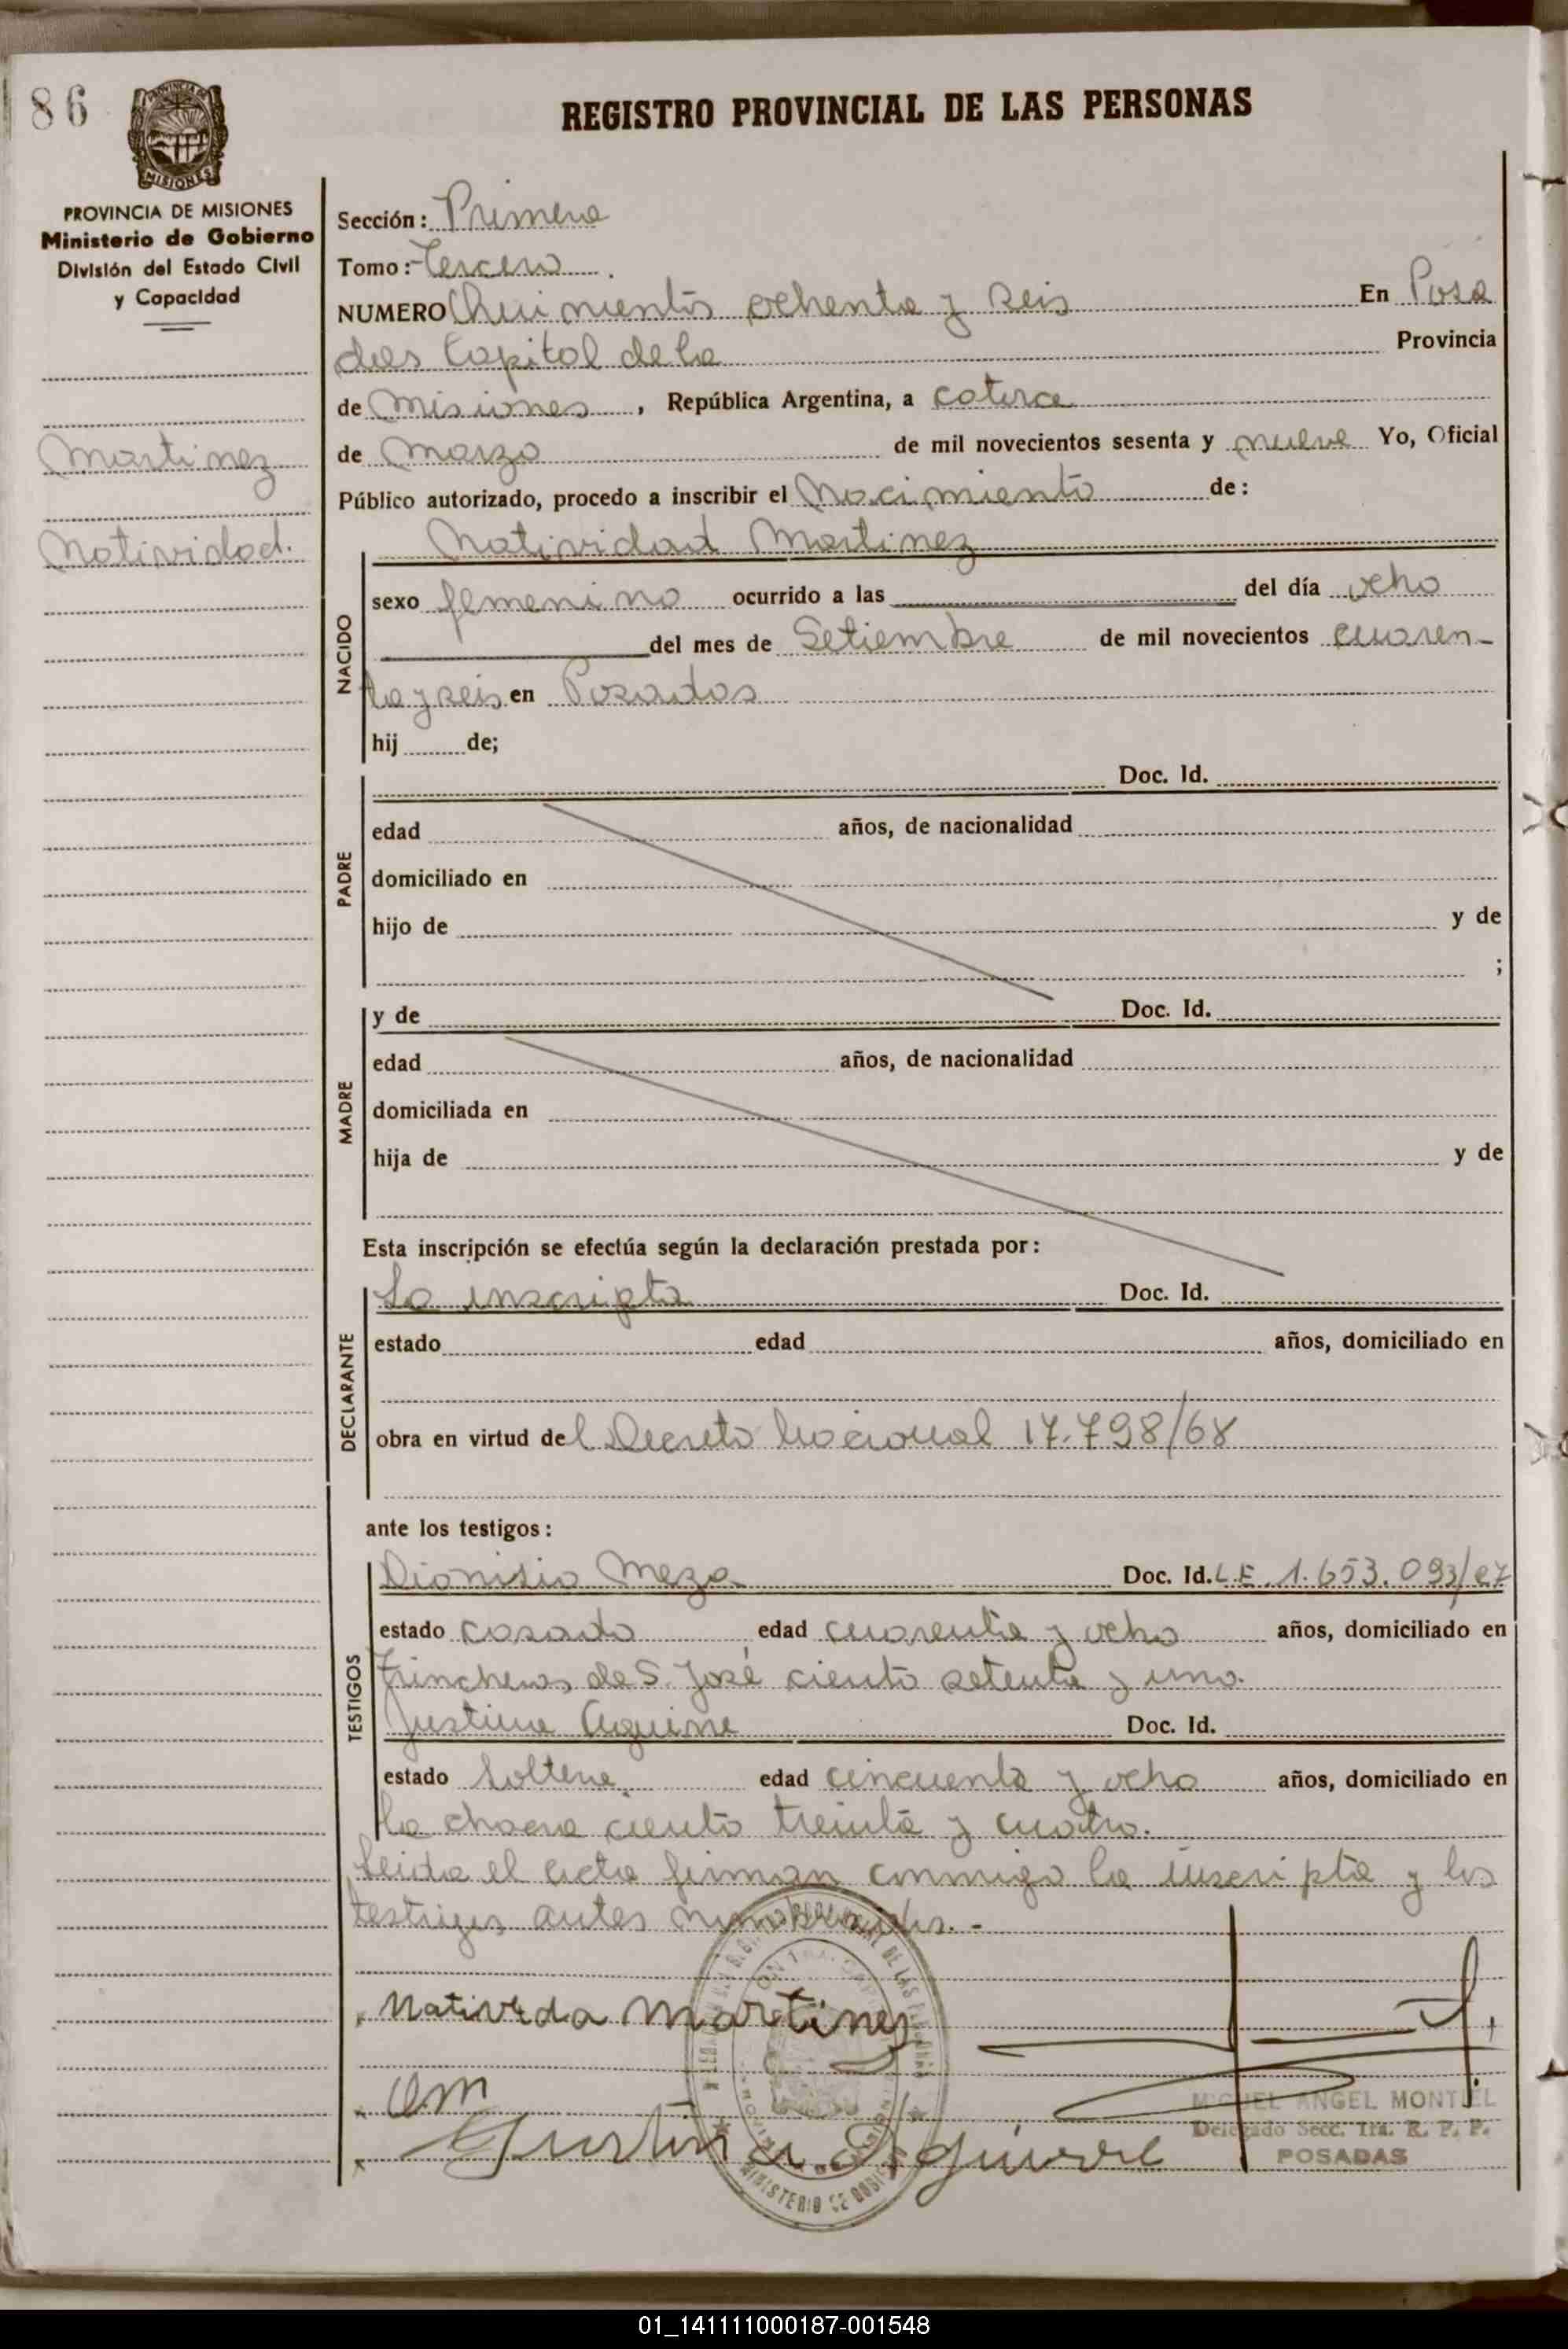 86
REGISTRO PROVINCIAL DE LAS PERSONAS
PROVINCIA DE MISIONES
Ministerio de Gobierno
División del Estado Civil
y Capacidad
Martinez
Natividad.
Sección: Primera
Tomo: Tercero
NUMERO Quinientos ochenta y seis En Posa
das Capital de la Provincia
de Misiones, República Argentina, a catorce
de Marzo de mil novecientos sesenta y nueve Yo, Oficial
Público autorizado, procedo a inscribir el Nacimiento de:
Natividad Martinez
NACIDO
sexo femenino ocurrido a las del día ocho
del mes de Setiembre de mil novecientos cuaren-
ta y seis en Posadas
hij de;
PADRE
Doc. Id.
edad años, de nacionalidad
domiciliado en
hijo de y de
;
MADRE
y de Doc. Id.
edad años, de nacionalidad
domiciliada en
hija de y de
Esta inscripción se efectúa según la declaración prestada por:
DECLARANTE
La inscripta Doc. Id.
estado edad años, domiciliado en
obra en virtud del Decreto Nacional 17.798/68
ante los testigos:
TESTIGOS
Dionisio Meza Doc. Id. L.E. 1.653.093/27
estado casado edad cuarenta y ocho años, domiciliado en
Trincheras de S. José ciento setenta y uno.
Justina Aguirre Doc. Id.
estado Soltera edad cincuenta y ocho años, domiciliado en
la chacra ciento treinta y cuatro.
Leida el acta firman conmigo la inscripta y los
testigos antes nombrados. -
Nativida Martinez
Justina Aguirre
MIGUEL ANGEL MONTIEL
Delegado Secc. 1ra. R. P. P.
POSADAS
MINISTERIO DE GOBIERNO
01_141111000187-001548